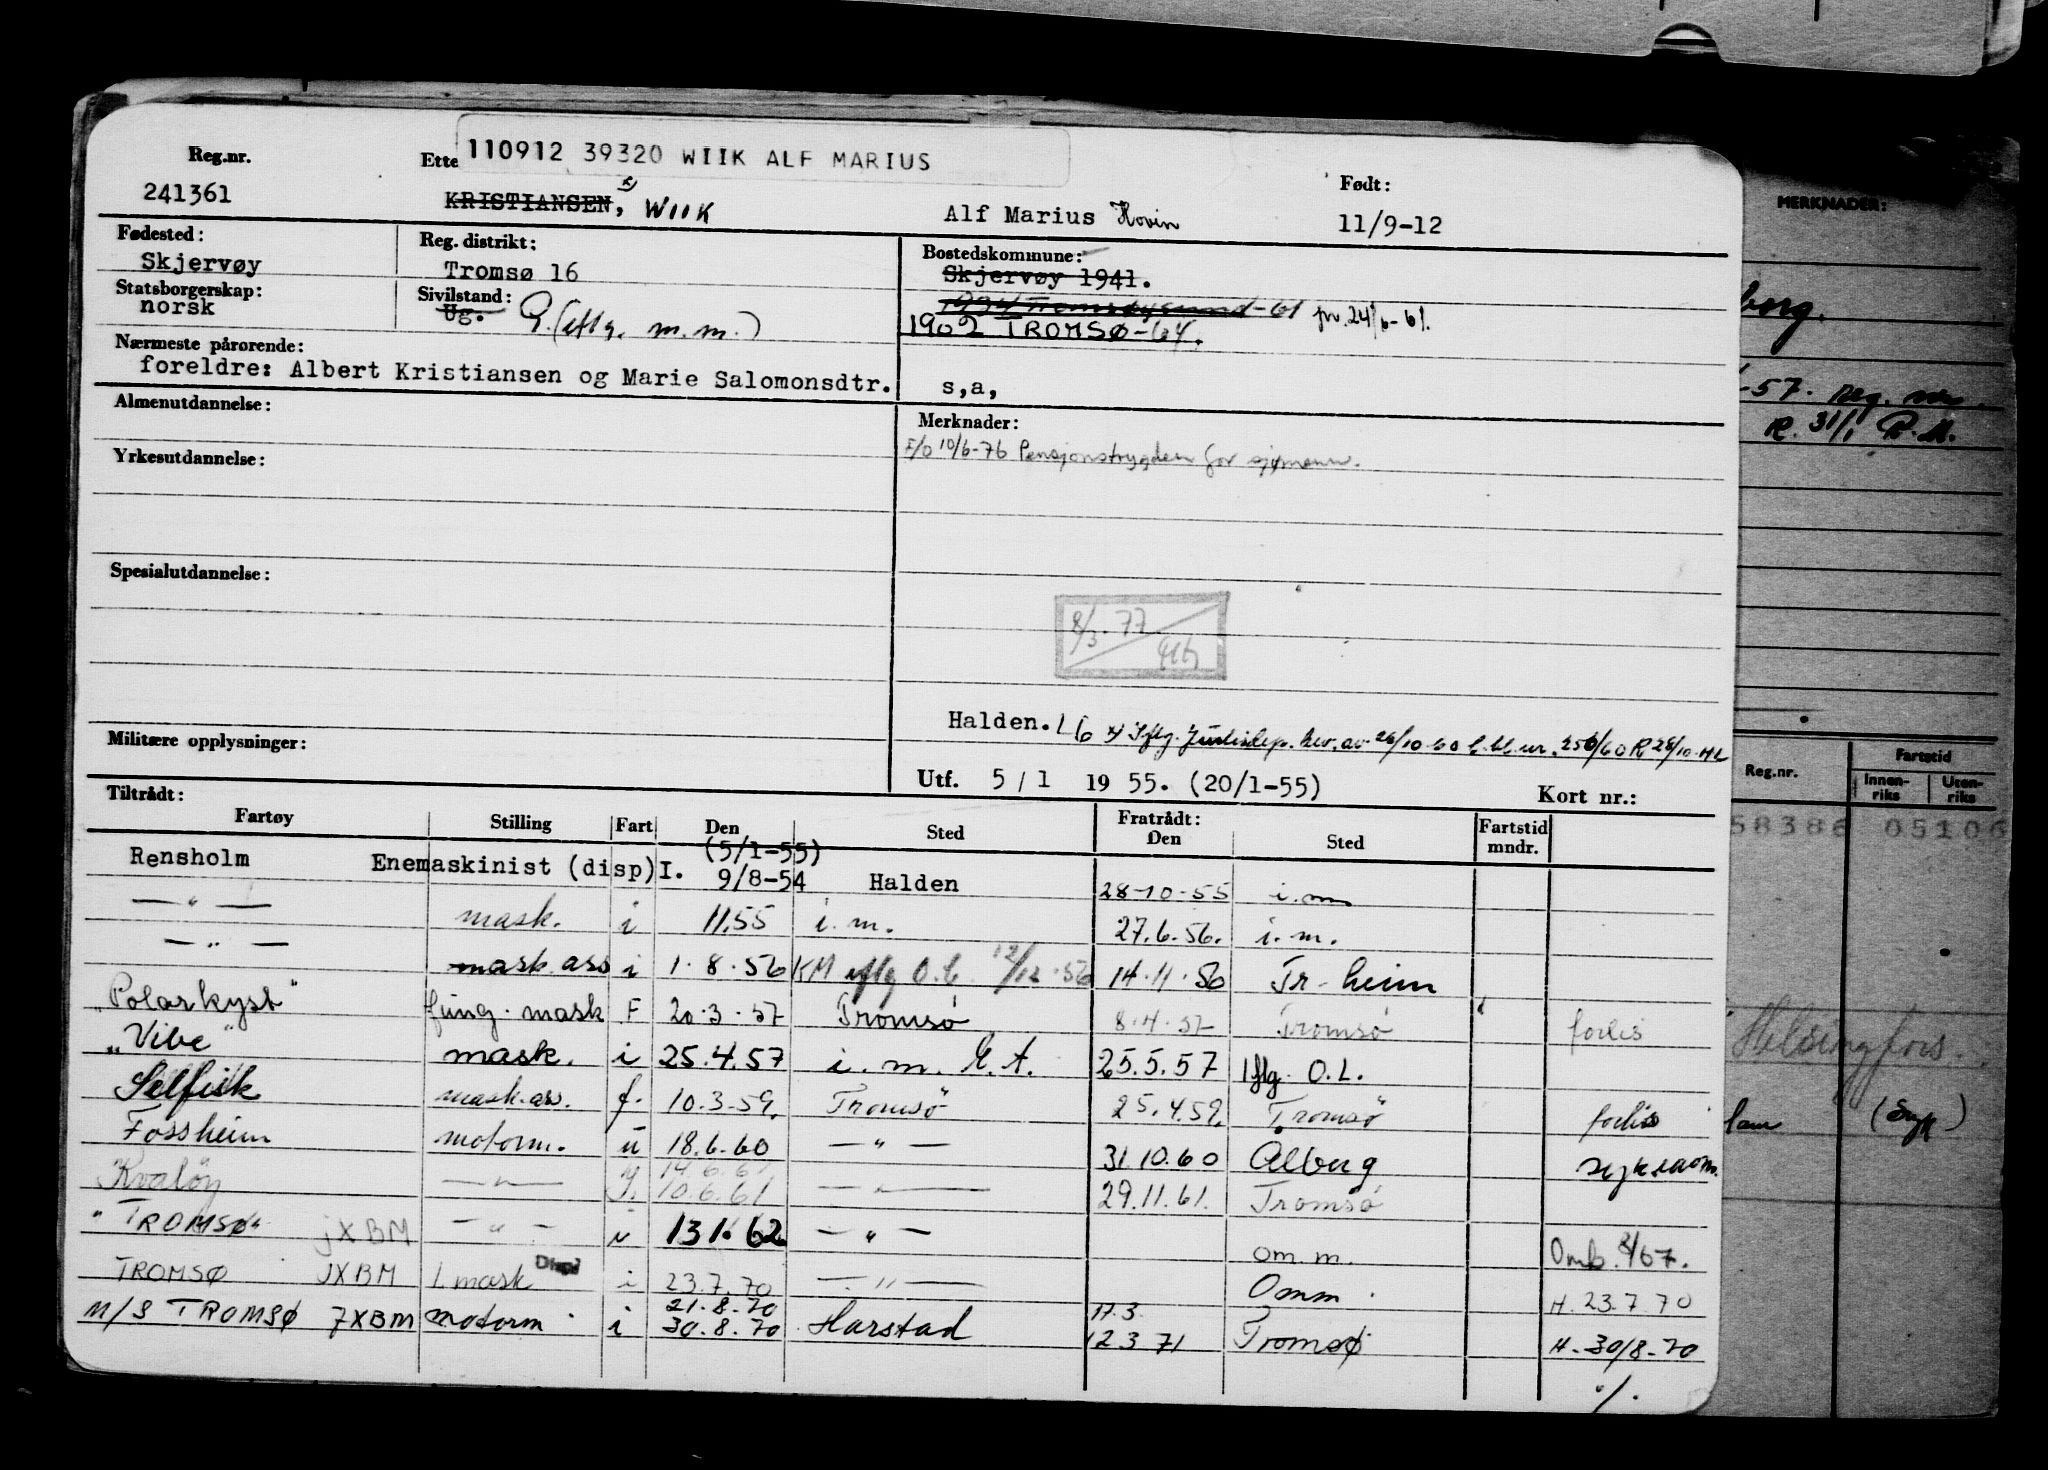 Reg.nr. Ette 110912 39320 WIIK ALF MARIUS Født:
241361 KRISTIANSEN, x) WIIK Alf Marius Hovin 11/9-12
Fødested: Reg. distrikt: Bostedskommune:
Skjervøy Tromsø 16 Skjervøy 1941.
Statsborgerskap: Sivilstand: 1934 Tromsøysund-61 fr. 24/6-61.
norsk Ug. G. (eflg. m.m.) 1902 TROMSØ-64.
Nærmeste pårørende:
foreldre: Albert Kristiansen og Marie Salomonsdtr. s,a,
Almenutdannelse: Merknader:
F/O 10/6-76 Pensjonstrygden for sjømenn.
Yrkesutdannelse:
Spesialutdannelse:
8/3-77
Halden. x) Iflg. Justisdep. brev. av 26/10-60 250/60 R 28/10
Militære opplysninger:
Utf. 5/1 1955. (20/1-55) Kort nr.:
Tiltrådt: Fratrådt:
Fartøy Stilling Fart Den Sted Den Sted Fartstid mndr.
(5/1-55)
Rensholm Enemaskinist (disp) I. 9/8-54 Halden 28-10-55 i.m.
— " — mask. i 11.55 i.m. 27.6.56. i.m.
— " — mask ass i 1.8.56 KM iflg O.L. 12/12.56 14.11.56 Tr-heim
"Polarkyst" fung. mask F 20.3.57 Tromsø 8.4.57 Tromsø forlis
"Vibe" mask. i 25.4.57 i.m. E.A. 25.5.57 Iflg. O.L.
Selfisk mask.ass. f. 10.3.59. Tromsö 25.4.59. Tromsö forlis
Fossheim motorm. u 18.6.60 — " — 31.10.60 Ålborg
14.6.61
Kvalöy — " — 10.6.61 — " — 29.11.61. Tromsø
"TROMSØ" JXBM — " — 13.1.62 — " — om m. Omb. 2/67.
TROMSØ JXBM 1. mask Disp i 23.7.70 — " — Omm. H. 23.7.70
21.8.70 17.3.
M/S TROMSØ JXBM motorm i 30.8.70 Harstad 12.3.71 Tromsø H. 30/8-70
./.
MERKNADER:
borg.
-57. reg. nr.
R. 31/1
Reg.nr. Fartstid
Innen-riks Uten-riks
58386 05106
Helsingfors.
(Syk)